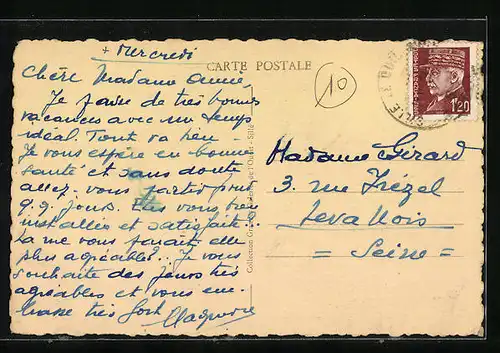 + Mercredi
CARTE POSTALE
10
1F20
Chère Madame
Je passe de très bonnes
vacances avec un temps
idéal. Tout va bien
Je vous espère en bonne
santé et sans doute
allez vous partir pour
q.q. jours. Etes vous bien
installée et satisfaite
La vue vous paraît elle
plus agréable? Je vous
souhaite des jours très
agréables et vous em-
brasse très fort
Madame Gérard
3. rue Trézel
Levallois
= Seine =